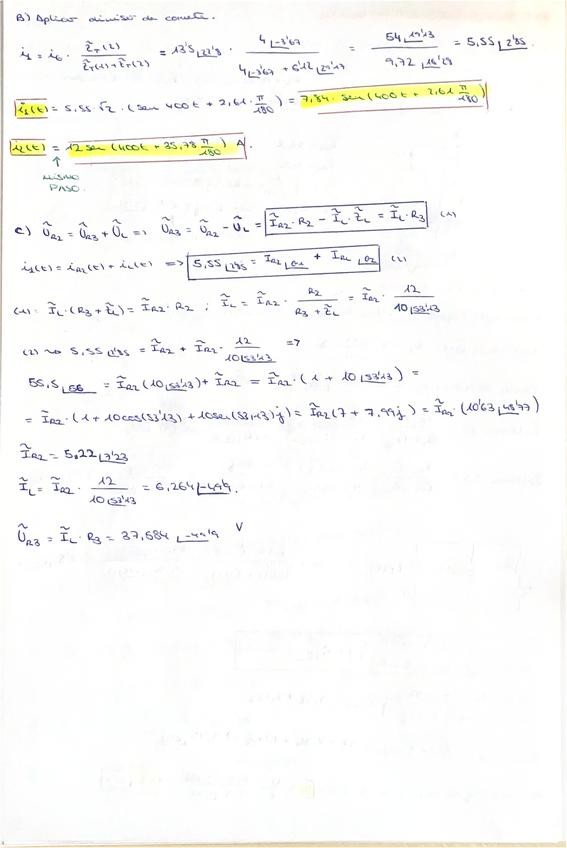 B) Aplicar divisió de corrents.
i₁ = i₆ · Z̃T(2) / Z̃T(1)+Z̃T(2) = 13'5 ∠22'8 · 4∠-3'67 / 4∠-3'67 + 6'12∠29'17 = 54∠19'13 / 9,72∠16'29 = 5,55∠2'85.
i₁(t) = 5,55 √2 · (sen 400t + 2,61 · π/180) = 7,84 · sen (400t + 2,61 π/180)
i₂(t) = 12 sen (400t + 35,78 π/180) A.
↑
MISMO
PASO.
C) Ũ_R2 = Ũ_R3 + Ũ_L => Ũ_R3 = Ũ_R2 - Ũ_L = Ĩ_R2 · R2 - Ĩ_L · Z̃_L = Ĩ_L · R3 (1)
i₁(t) = i_R2(t) + i_L(t) => 5,55∠2'85 = I_R2∠θ1 + I_RL∠θ2 (2)
(1): Ĩ_L · (R3 + Z̃_L) = Ĩ_R2 · R2 ; Ĩ_L = Ĩ_R2 · R2 / R3 + Z̃_L = Ĩ_R2 · 12 / 10∠53'13
(2) ⇝ 5,55∠2'85 = Ĩ_R2 + Ĩ_R2 · 12 / 10∠53'13 =>
55,5∠56 = Ĩ_R2 (10∠53'13) + Ĩ_R2 = Ĩ_R2 · (1 + 10∠53'13) =
= Ĩ_R2 · (1 + 10cos(53'13) + 10sen(53'13)j) = Ĩ_R2 (7 + 7,99j) = Ĩ_R2 · (10'63∠48'77)
Ĩ_R2 = 5,22∠7'23
Ĩ_L = Ĩ_R2 · 12 / 10∠53'13 = 6,264∠-49'9.
Ũ_R3 = Ĩ_L · R3 = 37,584∠-49'9 V